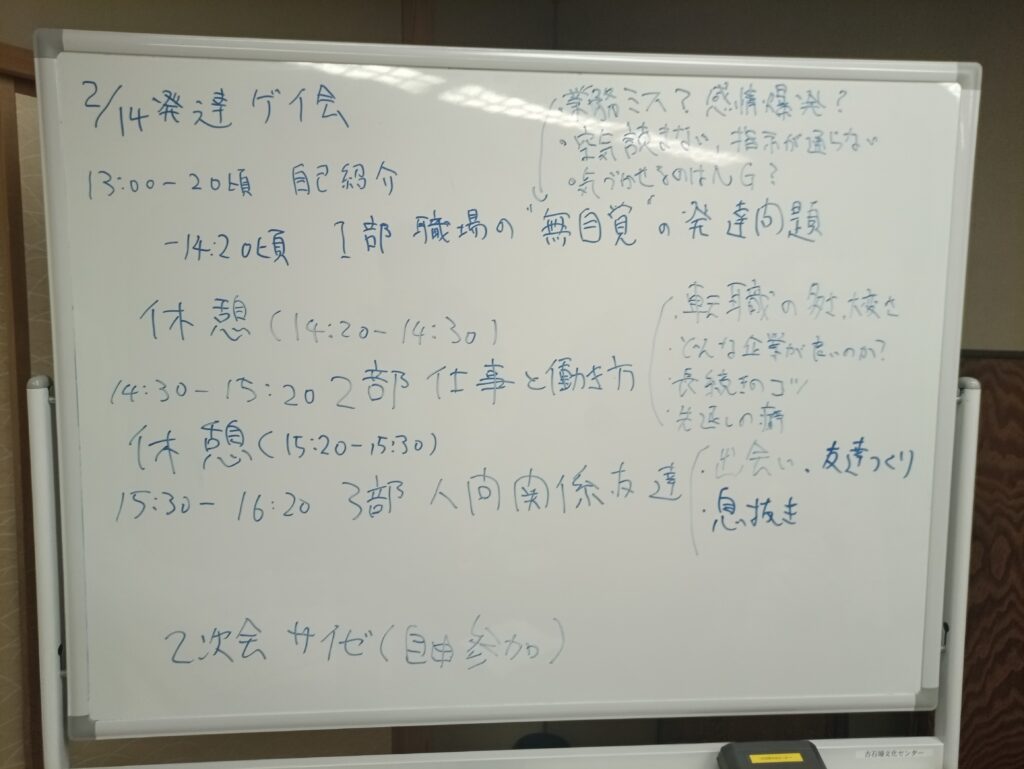 2/14発達ゲイ会
・業務ミス? 感情爆発?
・空気読まない、指示が通らない
・気づかせるのはNG?
13:00-20頃 自己紹介
-14:20頃 1部 職場の"無自覚"の発達問題
休憩(14:20-14:30)
・転職の多さ、大変さ
・どんな企業が良いのか?
・長続きのコツ
・先延しの癖
14:30-15:20 2部 仕事と働き方
休憩(15:20-15:30)
・出会い、友達つくり
・息抜き
15:30-16:20 3部 人間関係友達
2次会 サイゼ(自由参加)
古石場文化センター